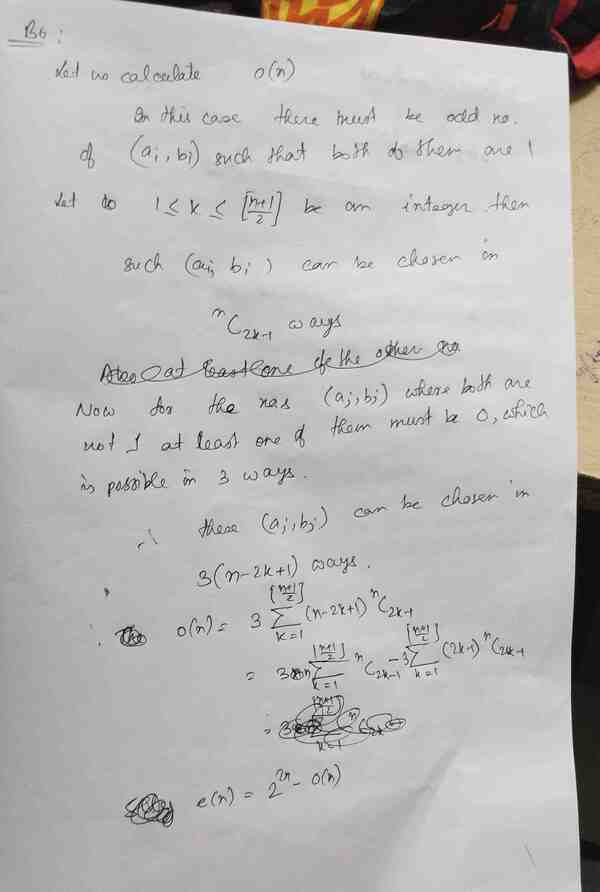 B6:
Let us calculate o(n)
In this case there must be odd no.
of (ai, bi) such that both of them are 1
Let 1 ≤ k ≤ [n+1/2] be an integer then
such (ai, bi) can be chosen in
nC2k-1 ways
Also at least one of the other no
Now for the (aj, bj) where both are
not 1 at least one of them must be 0, which
is possible in 3 ways.
∴ these (aj, bj) can be chosen in
3(n-2k+1) ways.
∴ o(n) = 3 [n+1/2]∑k=1 (n-2k+1) nC2k-1
= 3n [n+1/2]∑k=1 nC2k-1 - 3 [n+1/2]∑k=1 (2k-1) nC2k-1
e(n) = 2^2n - o(n)